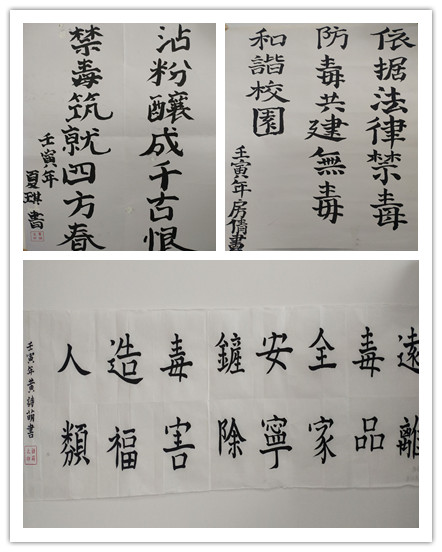 沾粉釀成千古恨
禁毒筑就四方春
壬寅年
夏琳書
依据法律禁毒
防毒共建無毒
和諧校園
壬寅年房倩書
遠離
毒品
全家
安寧
鏟除
毒害
造福
人類
壬寅年黄詩萌書